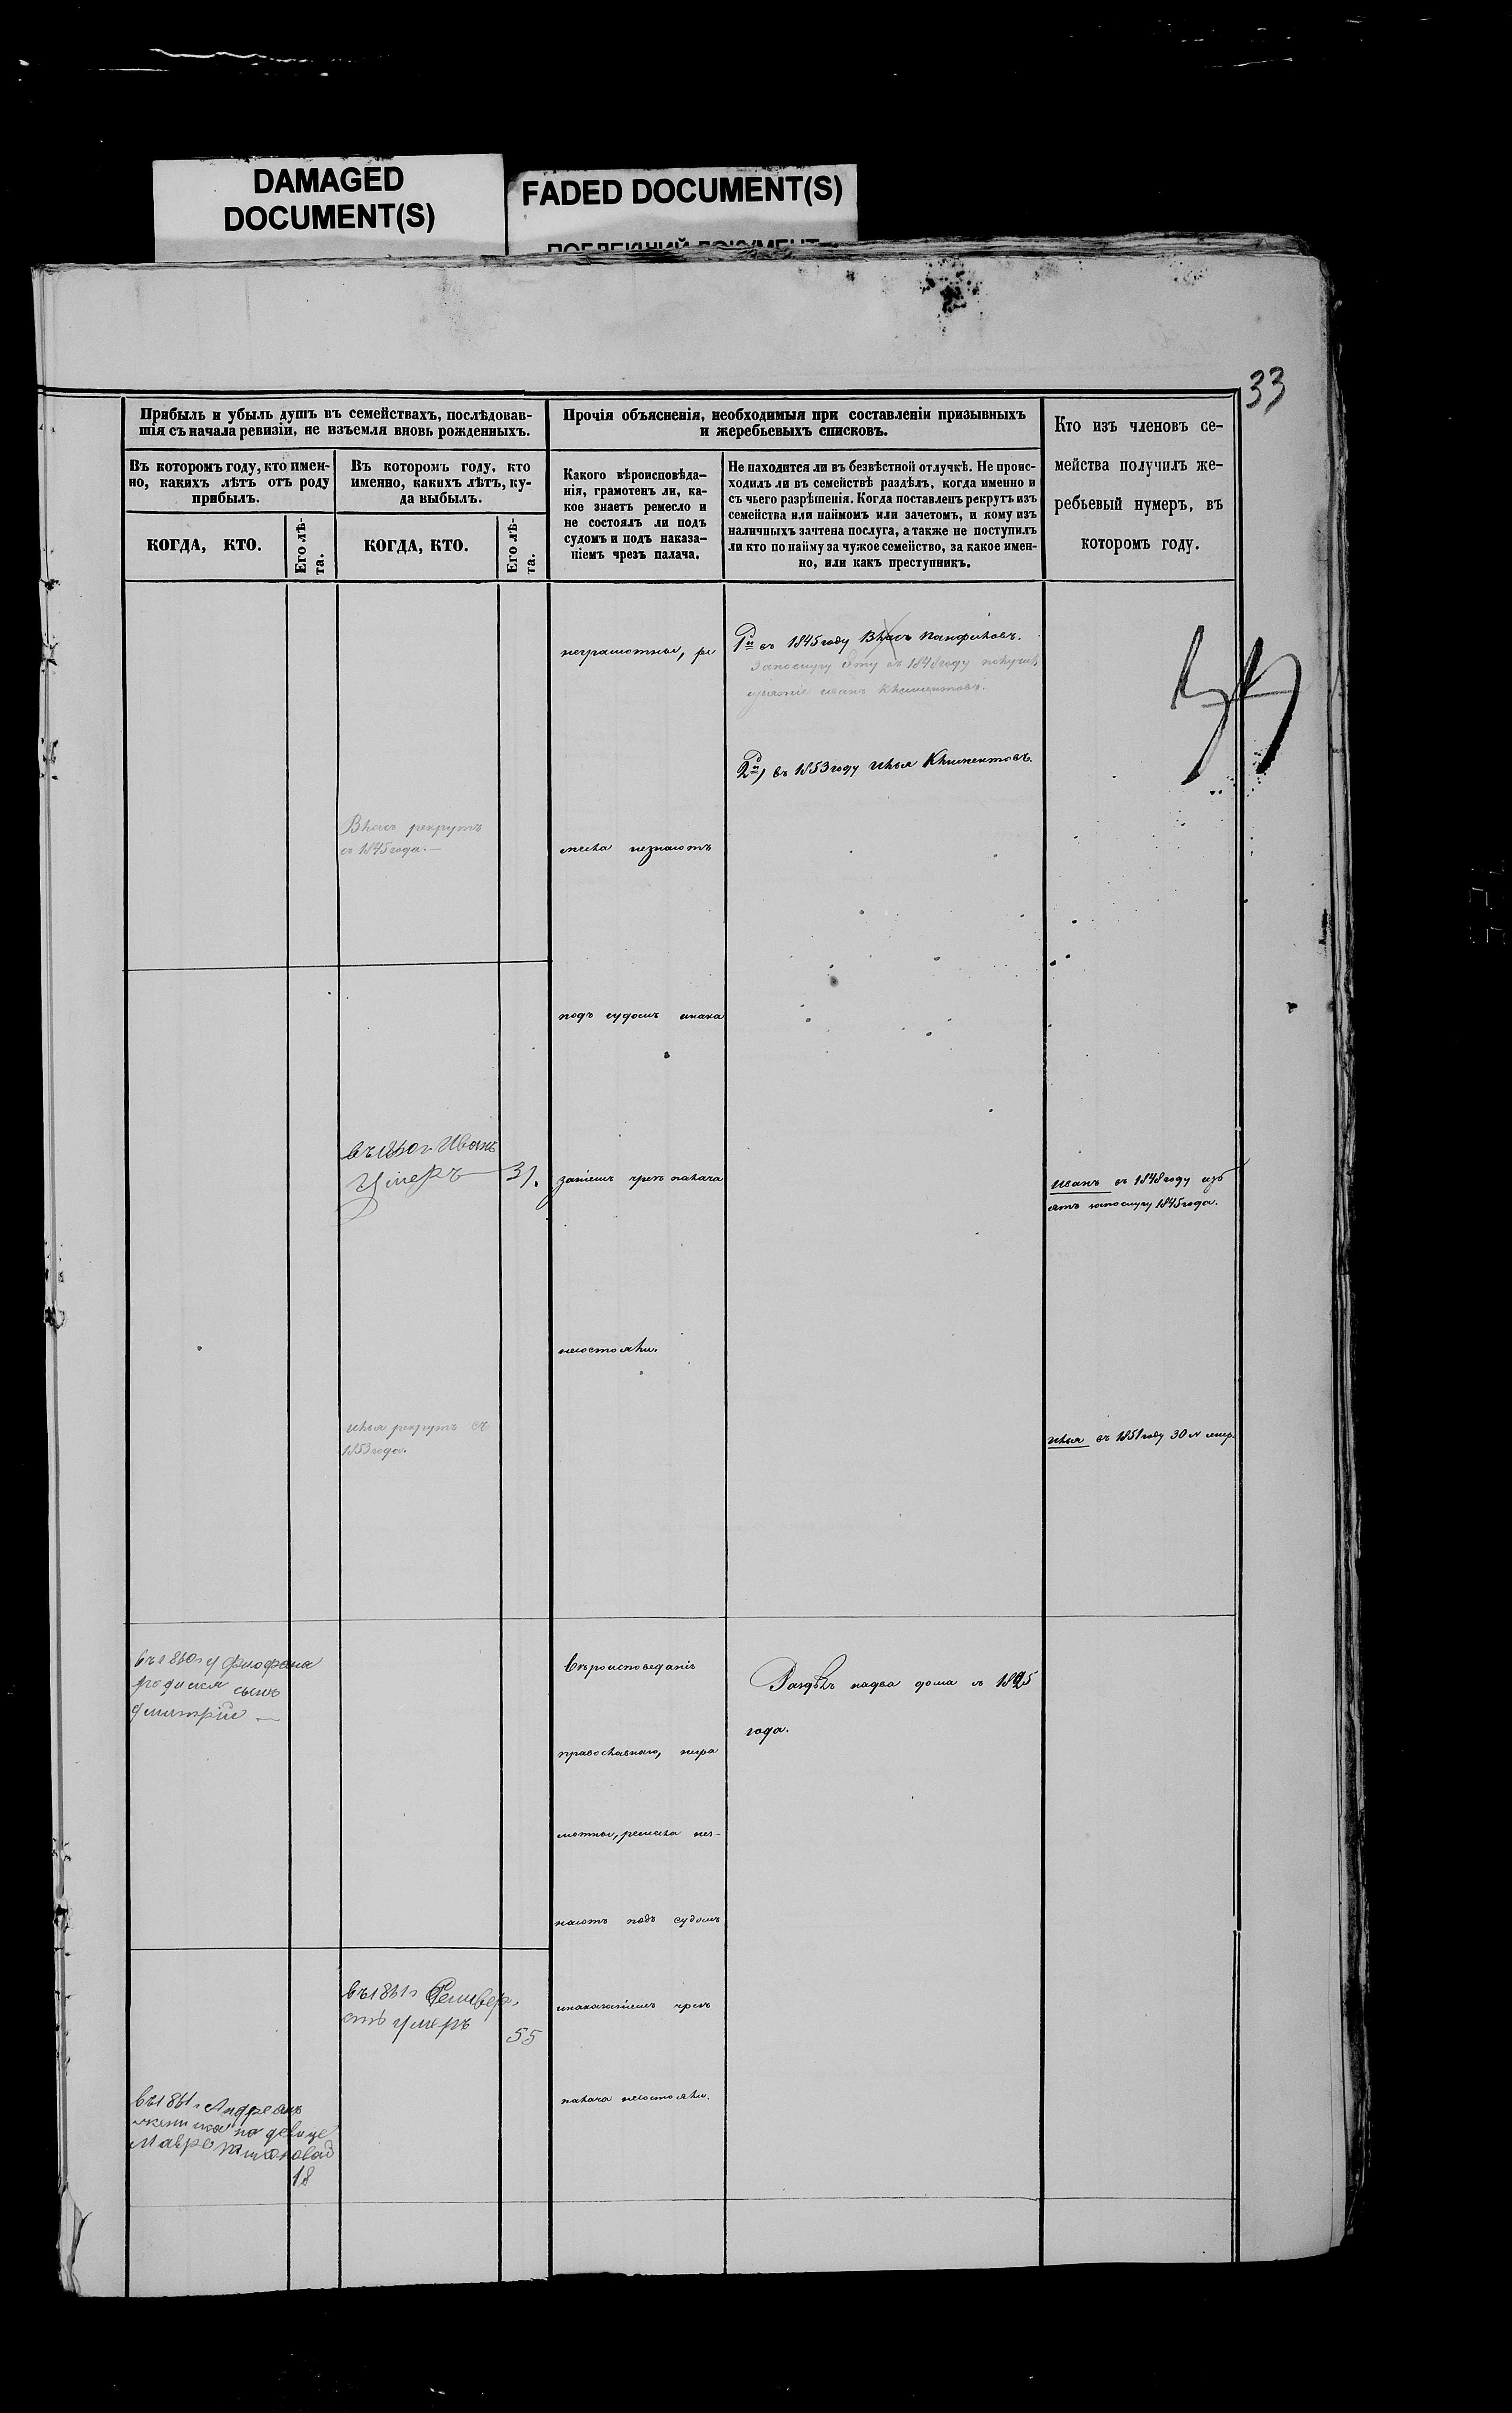 DAMAGED
DOCUMENT(S)
FADED DOCUMENT(S)
ПОБЛЕКШИЙ ДОКУМЕНТ
33
Прибыль и убыль душъ въ семействахъ, послѣдовав-
шія съ начала ревизіи, не изъемля вновь рожденныхъ.
Въ которомъ году, кто имен-
но, какихъ лѣтъ отъ роду
прибылъ.
КОГДА, КТО.
Его лѣ-
та.
Въ которомъ году, кто
именно, какихъ лѣтъ, ку-
да выбылъ.
КОГДА, КТО.
Его лѣ-
та.
Прочія объясненія, необходимыя при составленіи призывныхъ
и жеребьевыхъ списковъ.
Какого вѣроисповѣда-
нія, грамотенъ ли, ка-
кое знаетъ ремесло и
не состоялъ ли подъ
судомъ и подъ наказа-
ніемъ чрезъ палача.
Не находится ли въ безвѣстной отлучкѣ. Не проис-
ходилъ ли въ семействѣ раздѣлъ, когда именно и
съ чьего разрѣшенія. Когда поставленъ рекрутъ изъ
семейства или наймомъ или зачетомъ, и кому изъ
наличныхъ зачтена послуга, а также не поступилъ
ли кто по найму за чужое семейство, за какое имен-
но, или какъ преступникъ.
Кто изъ членовъ се-
мейства получилъ же-
ребьевый нумеръ, въ
которомъ году.
неграмотны, ре
месла незнаютъ
подъ судомъ инака
заніемъ чрезъ палача
несостояли.
1й въ 1845 году Власъ Панфиловъ.
Запослугу эту въ 1848 году получилъ
иванъ Климентовъ.
2й, въ 1853 году Илья Климентовъ.
Власъ рекрутъ
съ 1845 года.—
въ 1860 г Иванъ
Умеръ — 31.
илья рекрутъ съ
1853 года.
иванъ въ 1848 году изъ
ятъ запослугу 1845 года.
илья въ 1851 году 30 №
въ 1860 г у Феофана
родился сынъ
Дмитрій —
Вѣроисповеданіе
православнаго, негра
мотны, ремесла нез-
наютъ подъ судомъ
инаказаніемъ чрезъ
палача несостояли.
Раздѣлъ надва дома въ
года.
въ 1861 г
умеръ
55
въ 1861 г Андреянъ
женился на девице
Мавре
18